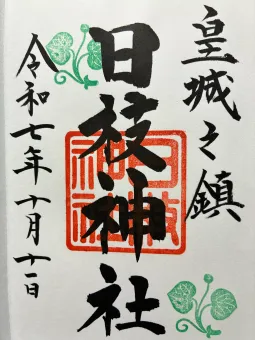 皇城之鎮
日枝神社
日枝神社
令和七年十月十一日